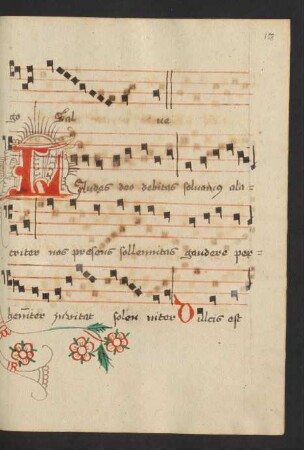 155
Sal ue
Laudes deo debitas soluamus ala-
criter nos presens sollennitas gaudere per-
hemiter inuitat solenniter Dulcis est